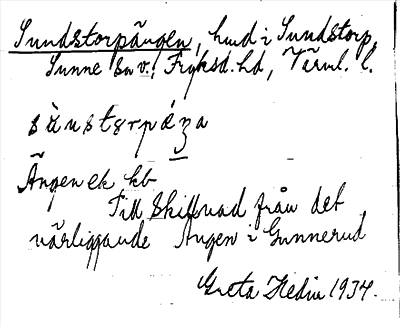 Sundstorpängen, hmd i Sundstorp,
Sunne sn v., Fryksd. hd, Värml. l.
sùnstɐrpǽŋa
Ängen ek kb
Till skillnad från det
närliggande Ängen i Gunnerud
Greta Hedin 1934.